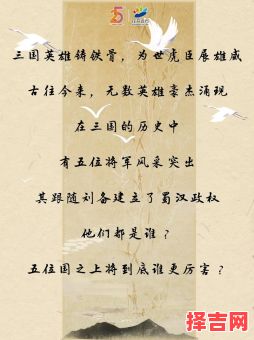 三国英雄铸铁骨，为世虎臣展雄威
古往今来，无数英雄豪杰涌现
在三国的历史中
有五位将军风采突出
其跟随刘备建立了蜀汉政权
他们都是谁？
五位国之上将到底谁更厉害？
择吉网